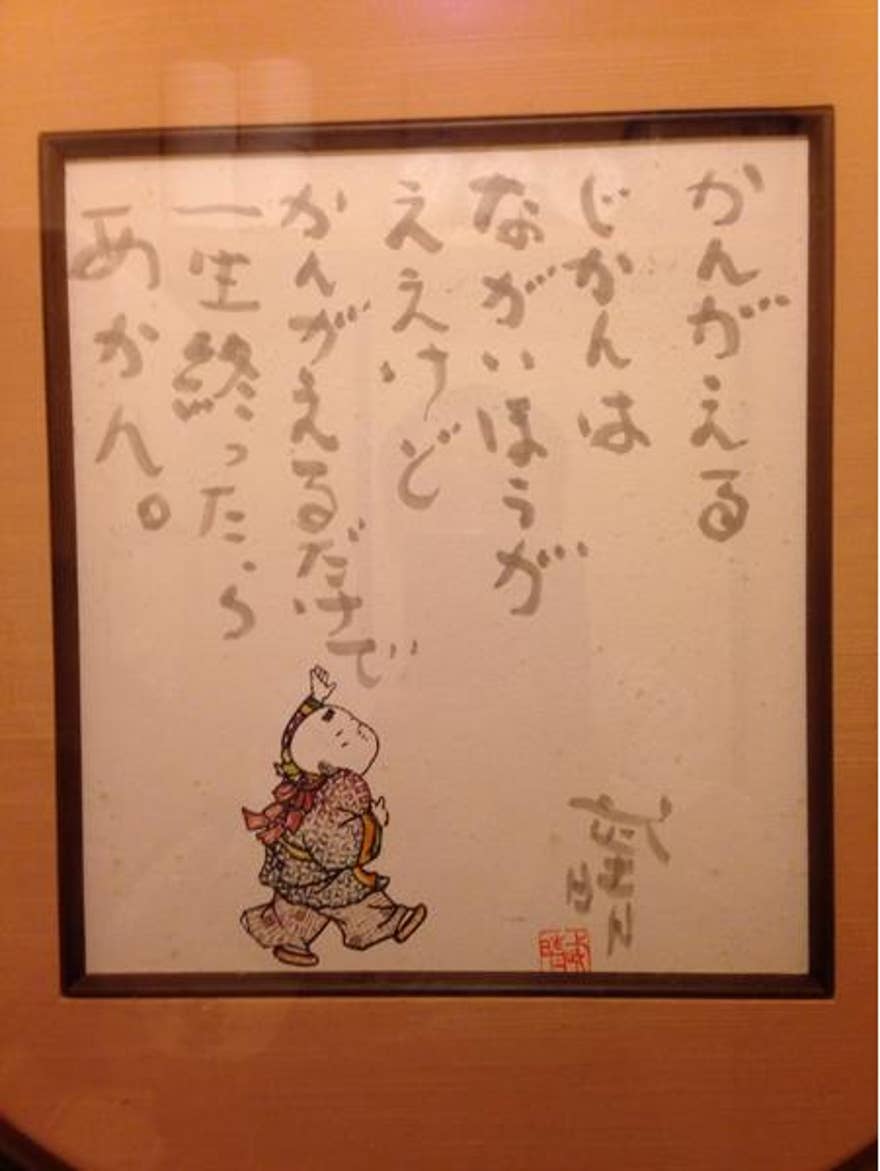 かんがえる
じかんは
ながいほうが
ええけど
かんがえるだけで
一生終ったら
あかん。